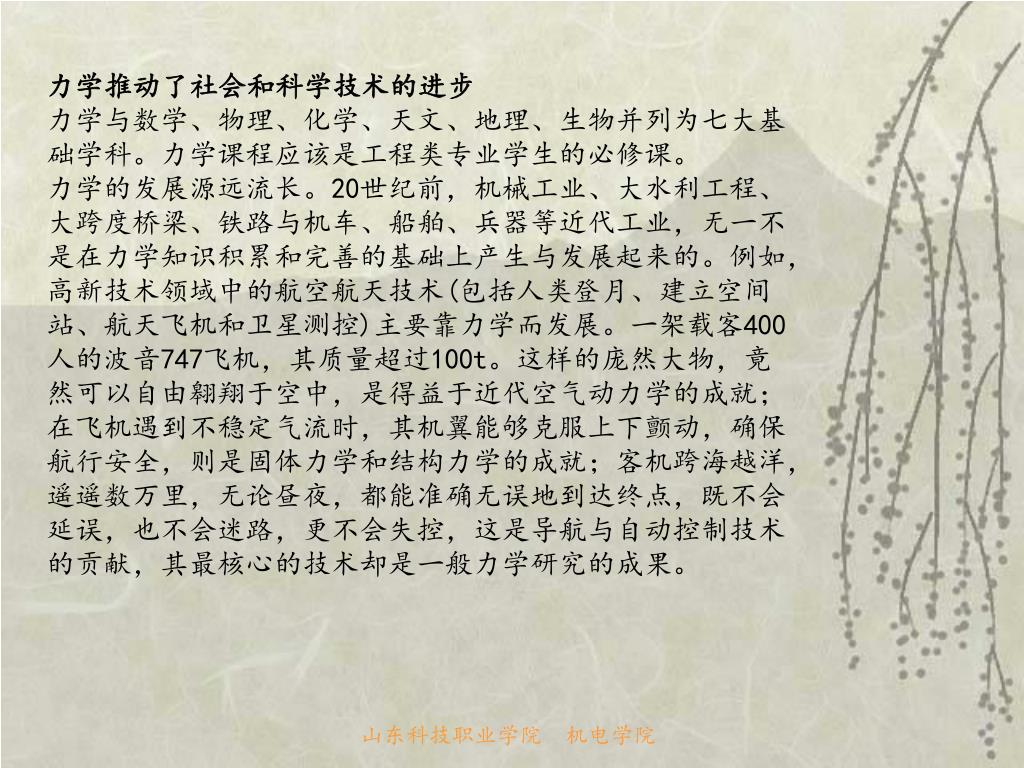 力学推动了社会和科学技术的进步
力学与数学、物理、化学、天文、地理、生物并列为七大基
础学科。力学课程应该是工程类专业学生的必修课。
力学的发展源远流长。20世纪前，机械工业、大水利工程、
大跨度桥梁、铁路与机车、船舶、兵器等近代工业，无一不
是在力学知识积累和完善的基础上产生与发展起来的。例如，
高新技术领域中的航空航天技术(包括人类登月、建立空间
站、航天飞机和卫星测控)主要靠力学而发展。一架载客400
人的波音747飞机，其质量超过100t。这样的庞然大物，竟
然可以自由翱翔于空中，是得益于近代空气动力学的成就；
在飞机遇到不稳定气流时，其机翼能够克服上下颤动，确保
航行安全，则是固体力学和结构力学的成就；客机跨海越洋，
遥遥数万里，无论昼夜，都能准确无误地到达终点，既不会
延误，也不会迷路，更不会失控，这是导航与自动控制技术
的贡献，其最核心的技术却是一般力学研究的成果。
山东科技职业学院 机电学院